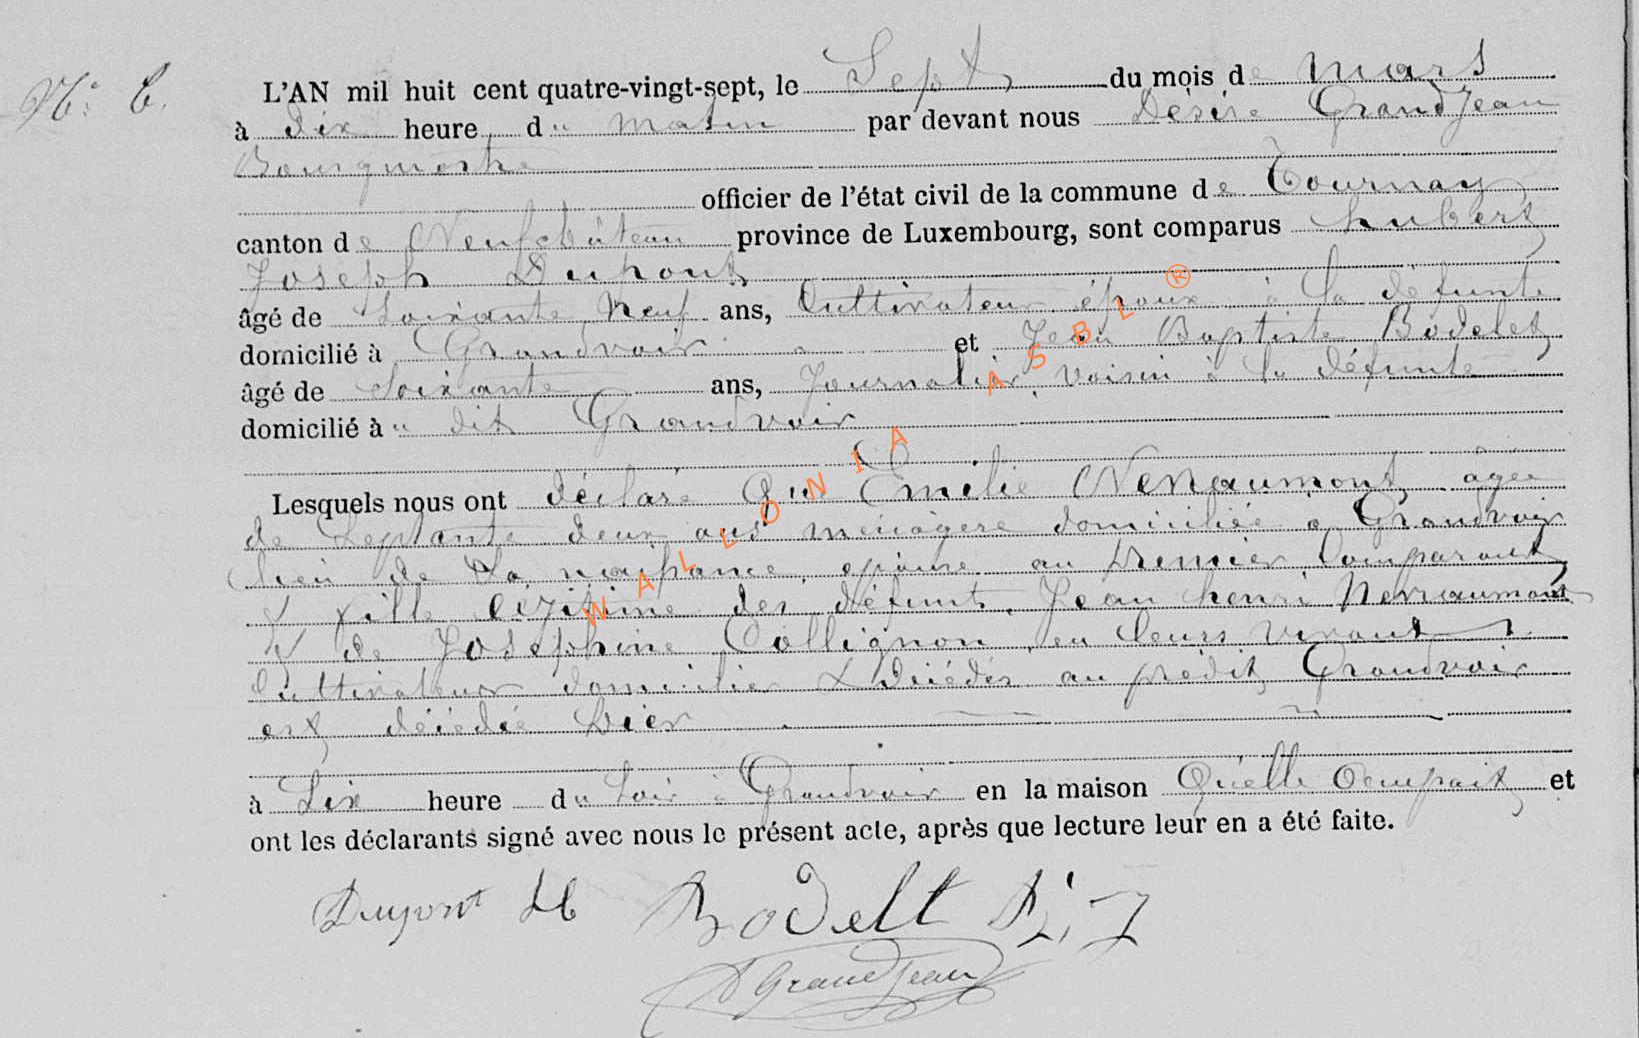 N° 6.
L'AN mil huit cent quatre-vingt-sept, le Sept du mois de mars
à dix heure du matin par devant nous Désiré Grandjean
Bourgmestre
officier de l'état civil de la commune de Tournay
canton de Neufchâteau province de Luxembourg, sont comparus hubert
Joseph Dupont
âgé de Soixante Neuf ans, Cultivateur époux à la défunte
domicilié à Grandvoir et Jean Baptiste Bodelet
âgé de Soixante ans, Journalier, voisin à la défunte
domicilié à u dit Grandvoir
Lesquels nous ont déclaré que Emélie Nenaumont âgée
de Septante deux ans ménagère domiciliée a Grandvoir
lieu de sa naissance, épouse au premier Comparant
& fille légitime des défunts Jean henri Nerraumont
& de Joséphine Collignon, en leurs vivant
Cultivateur domicilier & décédés au prédit Grandvoir
est décédée hier
à Six heure du Soir à Grandvoir en la maison Qu'elle Occupait et
ont les déclarants signé avec nous le présent acte, après que lecture leur en a été faite.
Dupont H Bodelt
D Grandjean
WALLONIA ASBL ®